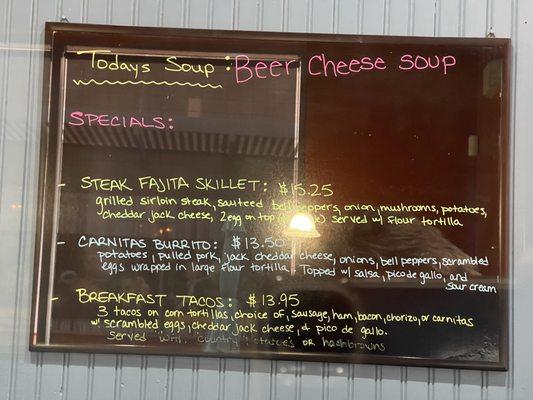 Todays Soup: Beer Cheese Soup
SPECIALS:
- STEAK FAJITA SKILLET: $15.25
grilled sirloin steak, sauteed bell peppers, onion, mushrooms, potatoes,
cheddar jack cheese, 2 egg on top served w/ flour tortilla
- CARNITAS BURRITO: $13.50
potatoes, pulled pork, jack cheddar cheese, onions, bell peppers, scrambled
eggs wrapped in large flour tortilla. Topped w/ salsa, pico de gallo, and
sour cream
- BREAKFAST TACOS: $13.95
3 tacos on corn tortillas, choice of, sausage, ham, bacon, chorizo, or carnitas
w/ scrambled eggs, cheddar jack cheese, & pico de gallo.
Served with country potatoes or hashbrowns